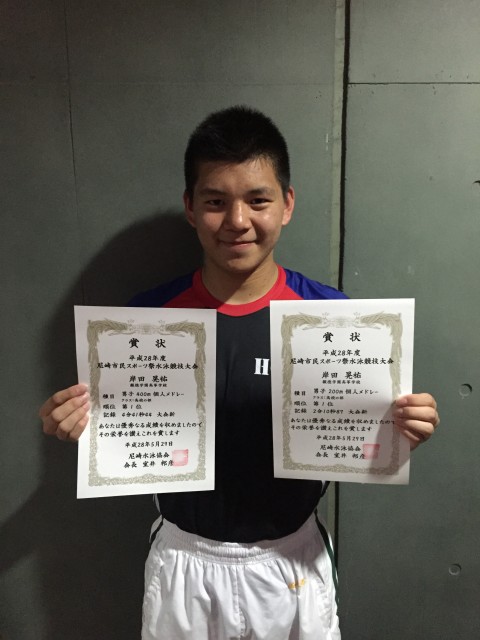 賞状
平成28年度
尼崎市民スポーツ祭水泳競技大会
岸田 晃祐
報徳学園高等学校
種目 男子 400m 個人メドレー
クラス:高校の部
順位 第1位
記録 4分41秒44 大会新
あなたは優秀なる成績を収めましたので
その栄誉を讃えこれを賞します
平成28年5月29日
尼崎水泳協会
会長 室井 邦彦
賞状
平成28年度
尼崎市民スポーツ祭水泳競技大会
岸田 晃祐
報徳学園高等学校
種目 男子 200m 個人メドレー
クラス:高校の部
順位 第1位
記録 2分10秒87 大会新
あなたは優秀なる成績を収めましたので
その栄誉を讃えこれを賞します
平成28年5月29日
尼崎水泳協会
会長 室井 邦彦